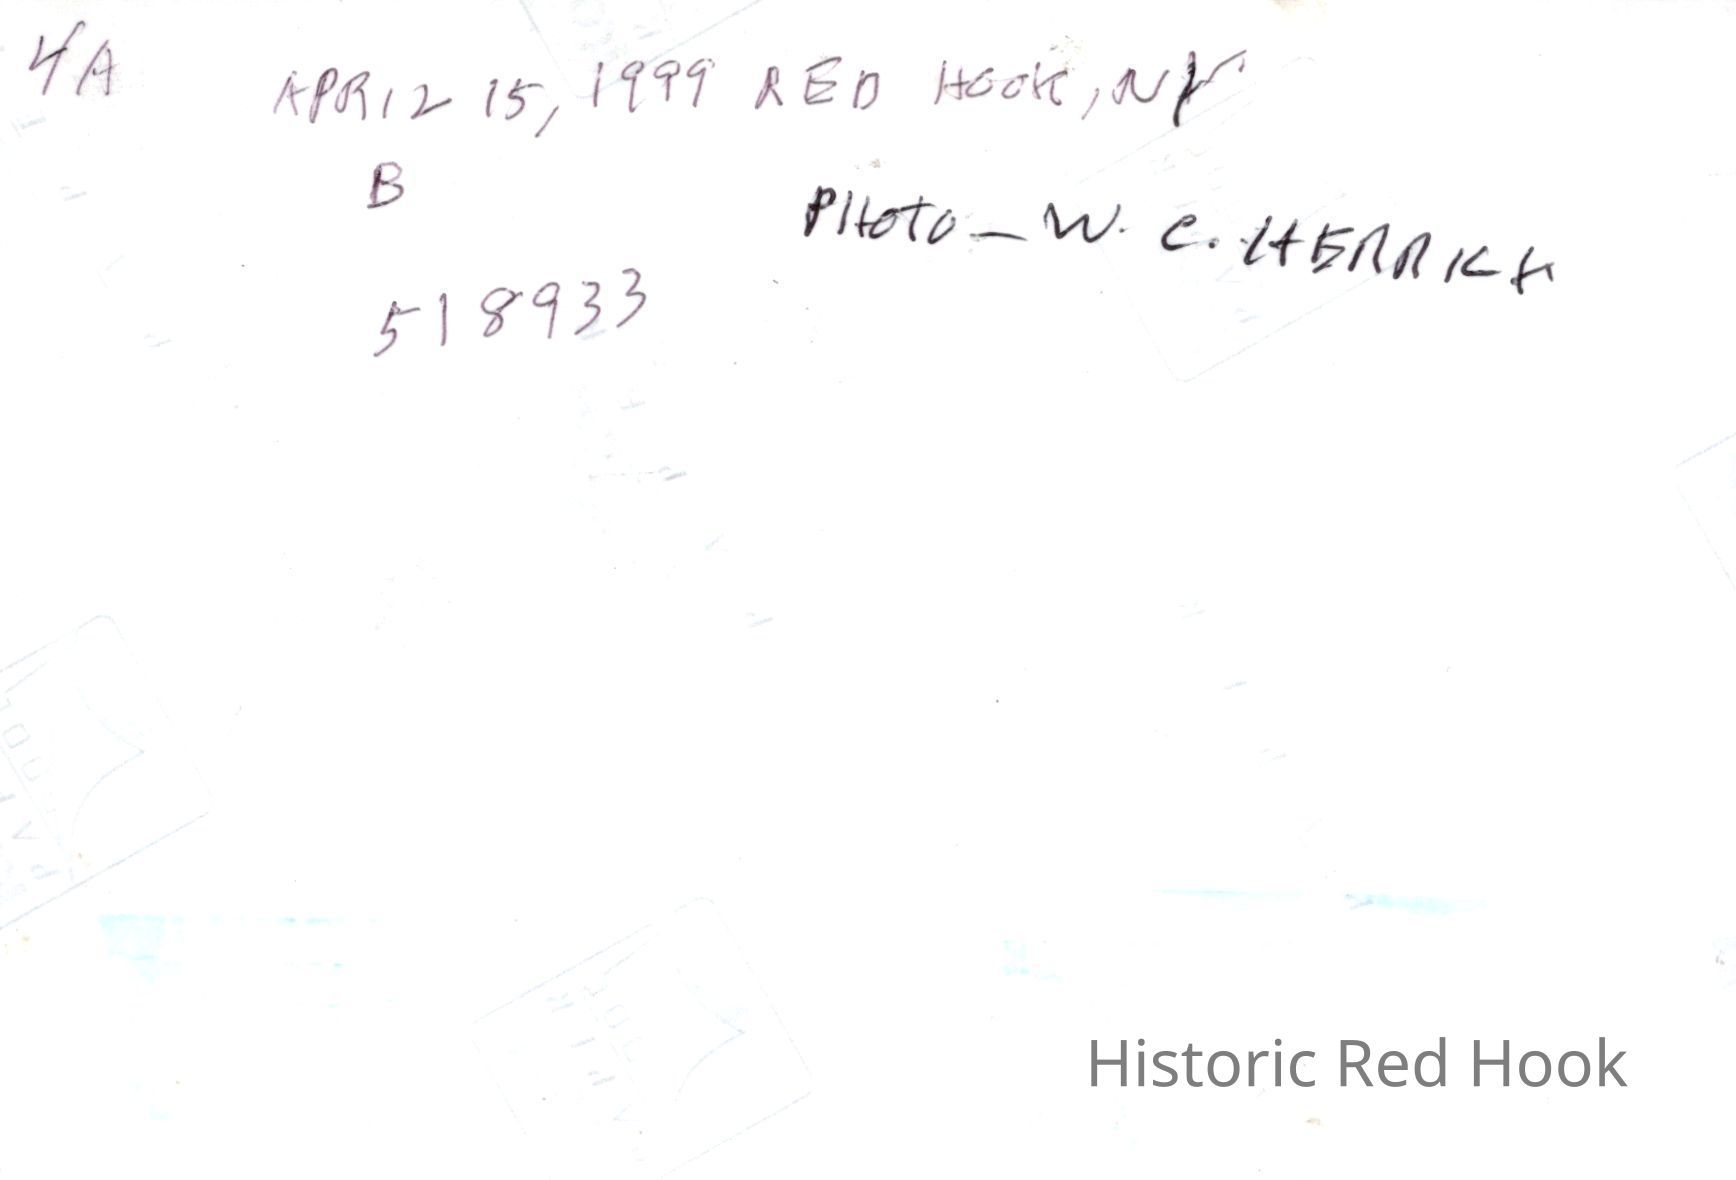 4A
APRIL 15, 1999 RED HOOK, NY
B
PHOTO - W. C. HERRICK
518933
Historic Red Hook